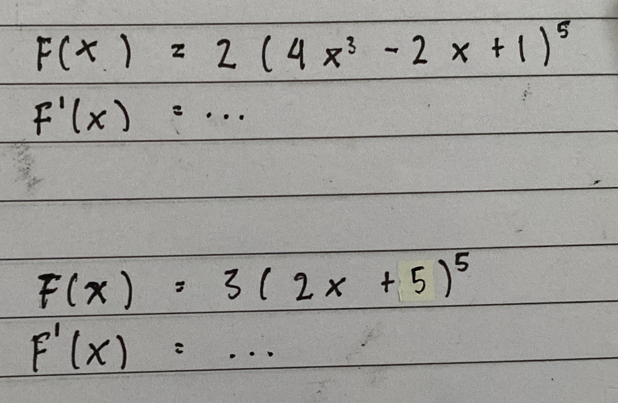 F(x) = 2 (4x³ - 2x + 1)⁵
F'(x) = ...
F(x) = 3 (2x + 5)⁵
F'(x) = ...